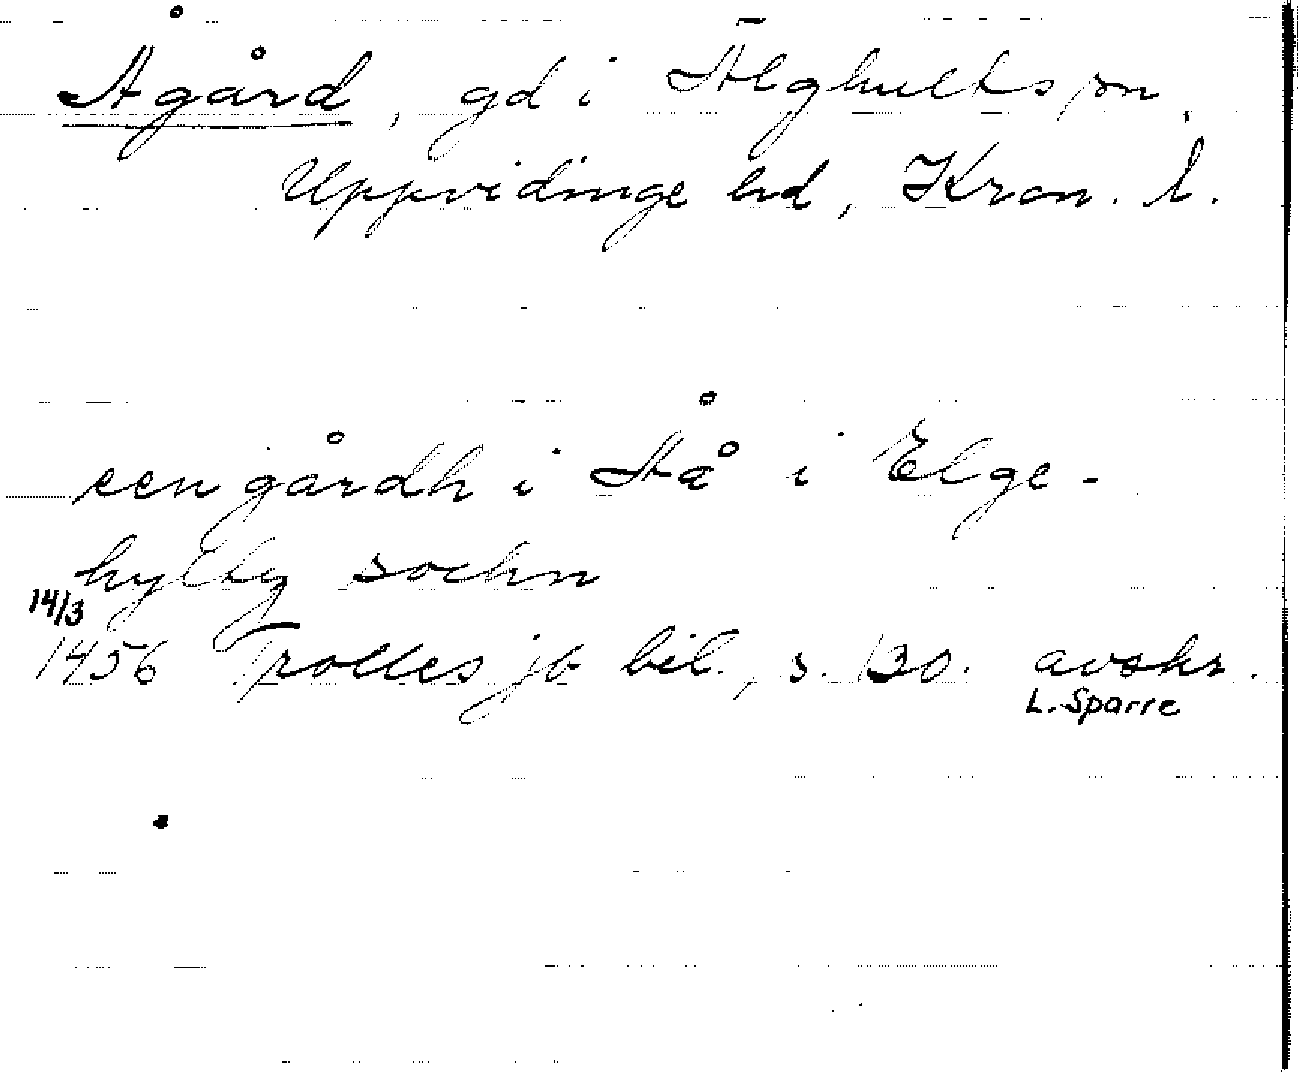 Ågård, gd i Älghults sn,
Uppvidinge hd, Kron. l.
een gårdh i Åå i Elge-
hylty sochn
14/3
1456 Trolles jb bil., s. 130. avskr.
L. Sparre